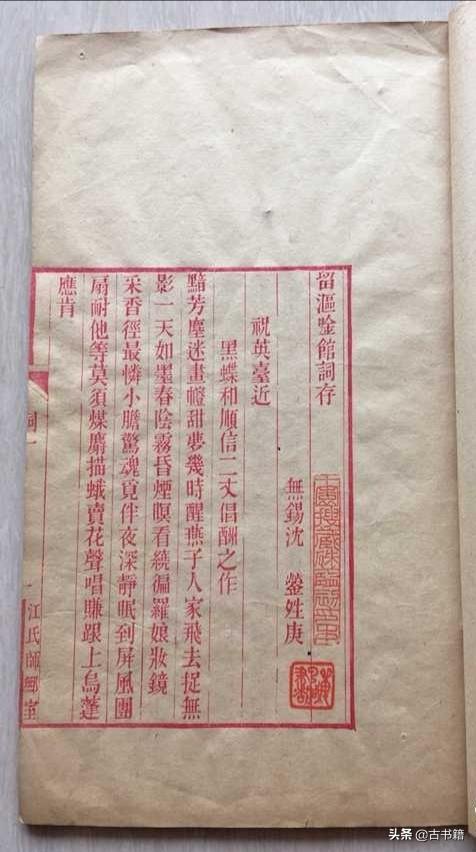 留漚唫館詞存
無錫沈　鎣夝庚
祝英臺近
黑蝶和順信二丈倡酬之作
黯芳塵迷畫幰甜夢幾時醒燕子人家飛去捉無
影一天如墨春陰霧昏煙暝看繞徧羅娘妝鏡
采香徑最憐小膽驚魂覓伴夜深靜眠到屏風團
扇耐他等莫須煤麝描蛾賣花聲唱賺跟上烏蓬
應肯
詞一
一
江氏師鄦室
头条 @古书籍